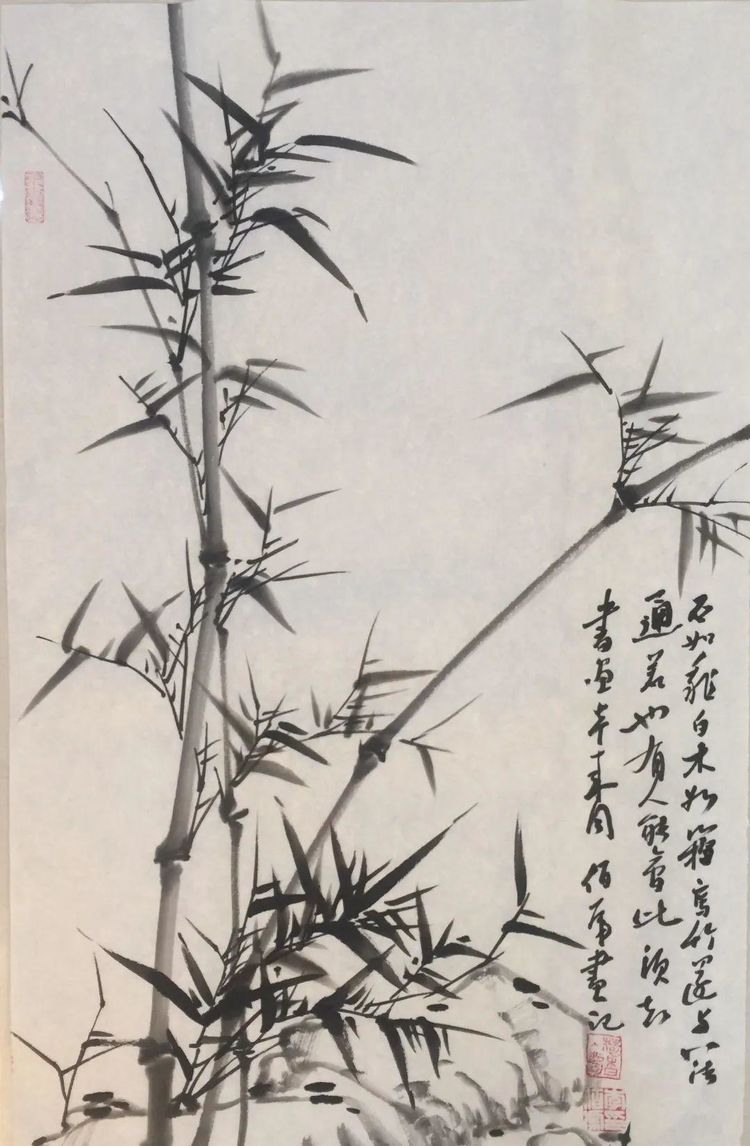 石如飛白木如籀寫竹還与八法
通若也有人能會此須知
書画本来同 佰畫記